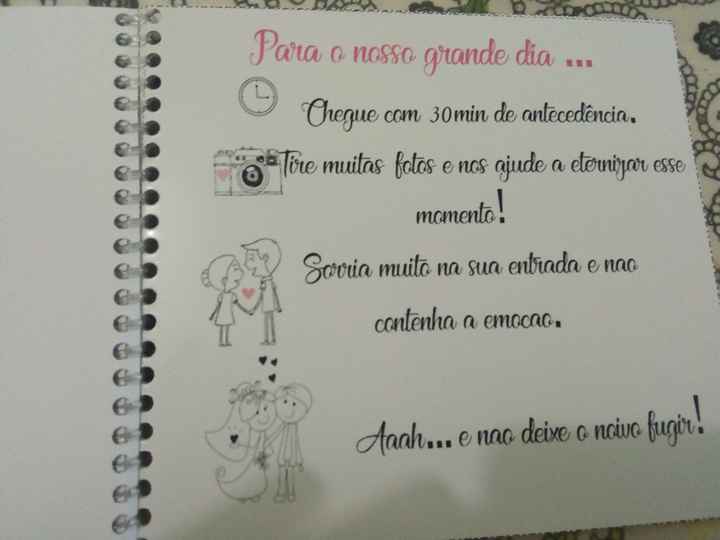 Para o nosso grande dia ...
Chegue com 30min de antecedência.
Tire muitas fotos e nos ajude a eternizar esse
momento!
Sorria muito na sua entrada e nao
contenha a emocao.
Aaah... e nao deixe o noivo fugir!